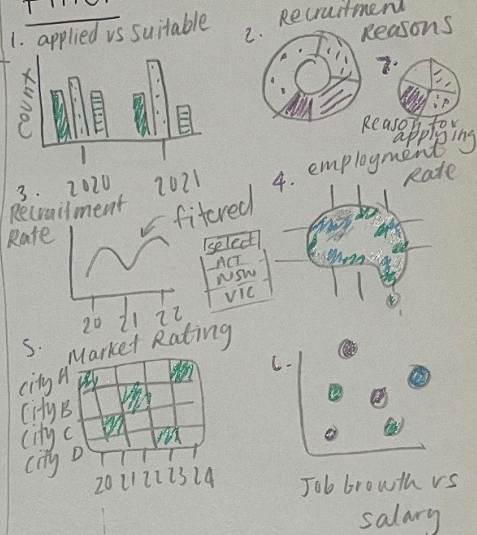 1. applied vs Suitable
Count
2020 2021
2. Recruitment
Reasons
7.
Reason for
applying
3.
Recruitment
Rate
fitcred
20 21 22
select
ACT
NSW
VIC
4. employment
Rate
5.
Market Rating
city A
city B
city C
city D
20 21 22 23 24
6.
Job Growth vs
salary